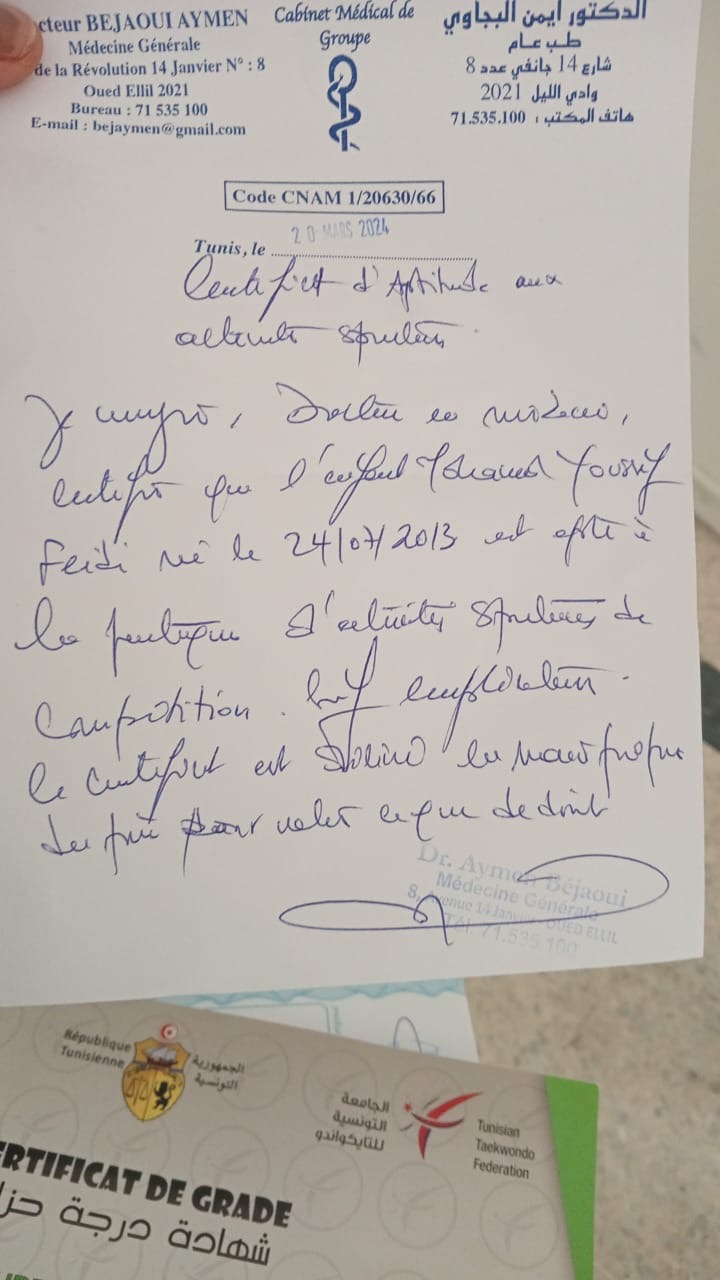 cteur BEJAOUI AYMEN
Médecine Générale
de la Révolution 14 Janvier N° : 8
Oued Ellil 2021
Bureau : 71 535 100
E-mail : bejaymen@gmail.com
Cabinet Médical de
Groupe
الدكتور أيمن البجاوي
طب عام
شارع 14 جانفي عدد 8
وادي الليل 2021
هاتف المكتب : 71.535.100
Code CNAM 1/20630/66
Tunis, le 20 MARS 2024
Certificat d'Aptitude aux
activités sportives.
Je soussigné, Docteur en médecine,
certifie que l'enfant Mohamed Youssef
Feidi né le 24/07/2013 est apte à
la pratique d'activités sportives de
Compétition. Sauf complication.
Le Certificat est délivré en main propre
pour valoir ce que de droit
Dr. Aymen Béjaoui
Médecine Générale
8, Avenue 14 Janvier OUED ELLIL
Tél: 71.535.100
République
Tunisienne
الجمهورية
التونسية
الجامعة
التونسية
للتايكواندو
Tunisian
Taekwondo
Federation
ERTIFICAT DE GRADE
شهادة درجة حزا